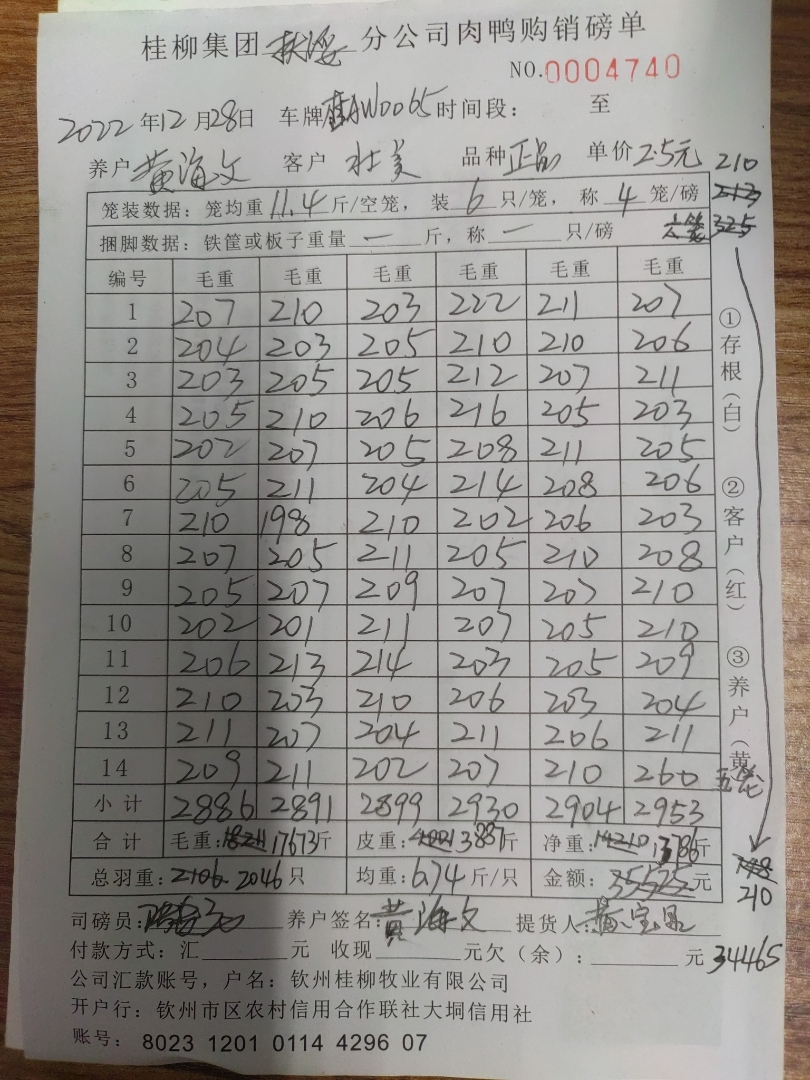 桂柳集团扶绥分公司肉鸭购销磅单
NO.0004740
2022年12月28日 车牌桂AW0065时间段： 至
养户黄海文 客户 杜美 品种正品 单价2.5元 210
笼装数据：笼均重11.4斤/空笼，装6只/笼，称4笼/磅 213
捆脚数据：铁筐或板子重量一斤，称一只/磅 六笼 325
编号 毛重 毛重 毛重 毛重 毛重 毛重
1 207 210 203 222 211 207
2 204 203 205 210 210 206
3 203 205 205 212 207 211
4 205 210 206 216 205 203
5 202 207 205 208 211 205
6 205 211 204 214 208 206
7 210 198 210 202 206 203
8 207 205 211 205 210 208
9 205 207 209 207 207 210
10 202 201 211 207 205 210
11 206 213 214 203 205 209
12 210 203 210 206 203 204
13 211 207 204 211 206 211
14 209 211 202 207 210 260 五笼
小计 2886 2891 2899 2930 2904 2953
合计 毛重：18211 17673斤 皮重：3887斤 净重：14210 13786斤
总羽重：2106 2046只 均重：6.74斤/只 金额：35525元
210
司磅员： 养户签名：黄海文 提货人：
付款方式：汇 元 收现 元欠（余）： 元 34465
公司汇款账号，户名：钦州桂柳牧业有限公司
开户行：钦州市区农村信用合作联社大垌信用社
账号：8023 1201 0114 4296 07
①存根（白） ②客户（红） ③养户（黄）